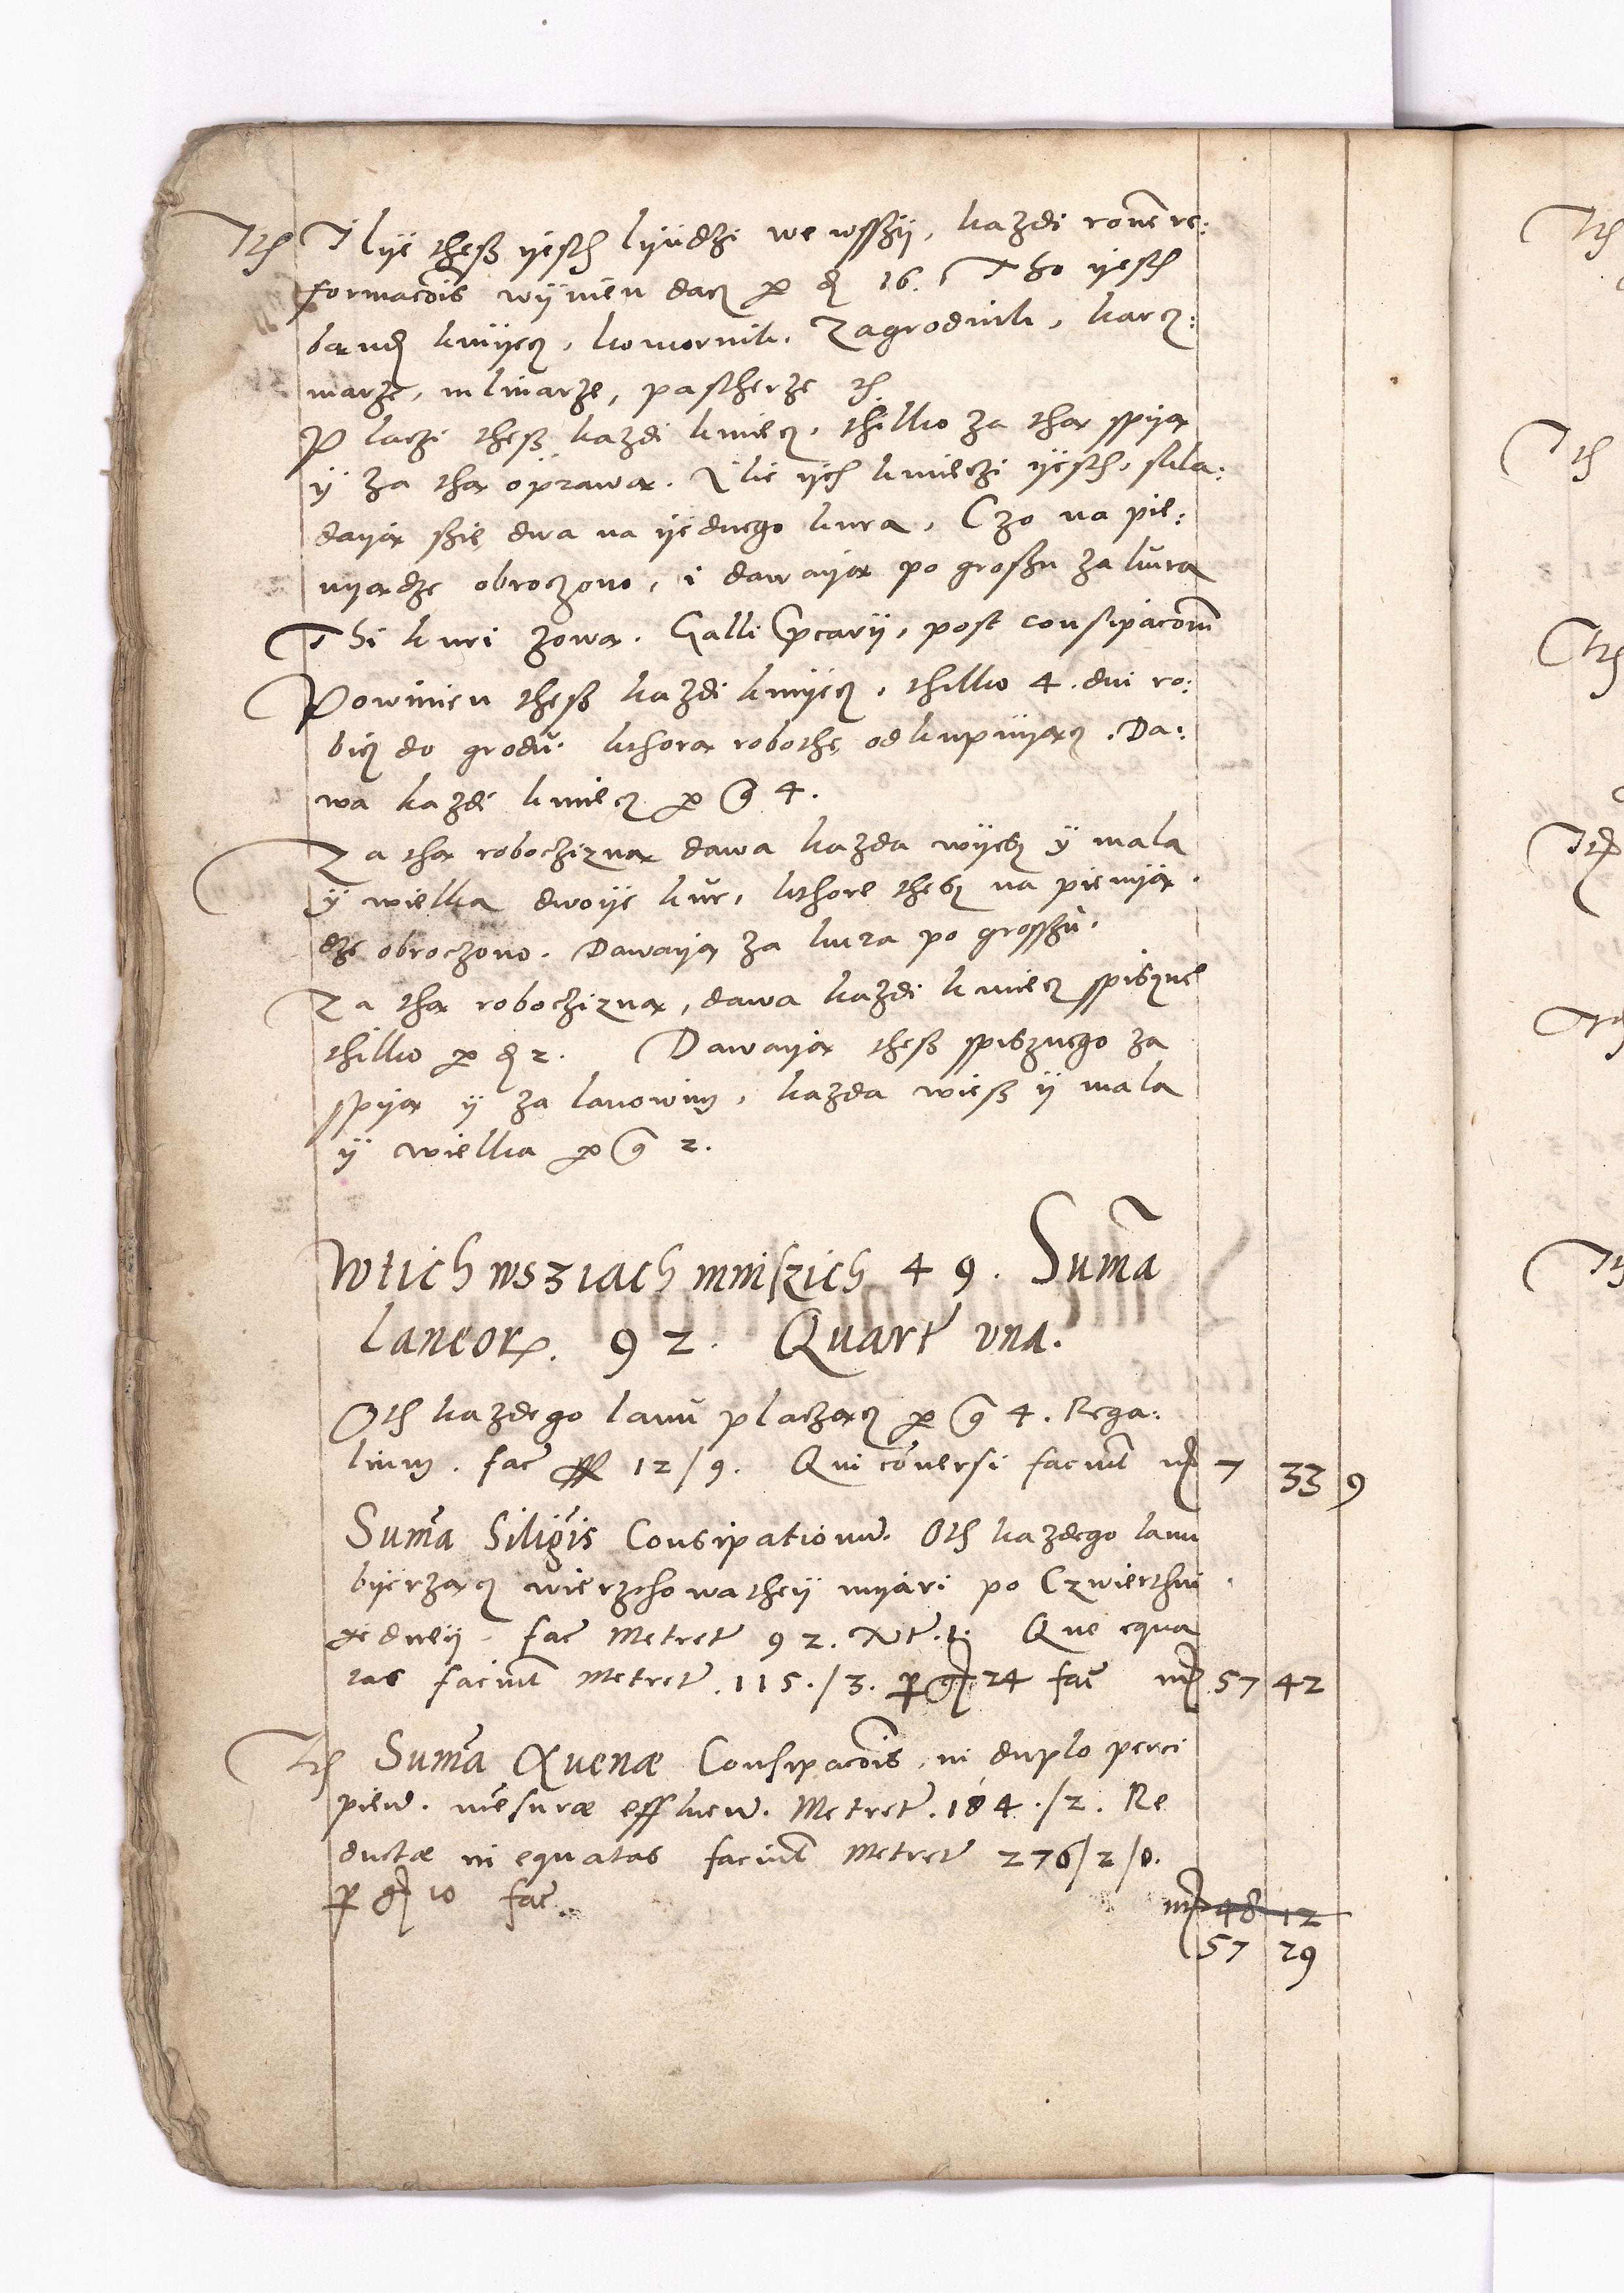 Ith Ilye thesz yesth lyudzi we wsszÿ, kazdi rone re:
formacōis wÿnien dacz per d 16. Tho yesth
bandz kmÿecz, komornik, Zagrodnik, karcz:
marze, mlinarze, pastherze etc.
Placzi thesz kazdi kmiecz, thilko za tha spiya
ÿ za tha oprawa. Ilie ych kmieczi yesth, skla:
daya szie dwa na yednego kura, Czo na pie:
nyadze obroczono, i dawaya po groszu za kura
Thi kuri zowa. Galli pcarÿ, post consipacōm
Powinien thesz kazdi kmÿecz, thilko 4. dni ro:
bicz do grodu. kthora robothe odkupuyacz. Da:
wa kazdi kmiecz per g 4.
Za tha roboczizna dawa kazda wÿesz ÿ mala
ÿ wielka dwoye kur, kthore thesz na pieniya.
dze obroczono. Dawaya za kura po grosszu.
Za tha roboczizna, dawa kazdi kmiecz spiszne
thilko per d 2. Dawaya thesz spisznego za
spiya ÿ za lanowim, kazda wiesz ÿ mala
ÿ wielka per g 2.
Wtich wsziach mniszich 49. Suma
laneor. 92. Quart una.
Oth kazdego lanu placzacz per g 4. Rega:
lium. fac 12/9. Qui conversi faciunt m 7 33 9
Suma Siliginis Consipationum. Oth kazdego lanu
byerzacz wierzchowathey myari po Czwierthni
yedney. fac Metret 92. qrt. 1. Que equa
tas faciunt Metret 115./3. per g 24 fac m 57 42
Ith Suma Avenæ Consipacōis, in duplo perci
piend. mesuræ effluen. Metret. 184./2. Re
ductæ in equatas faciunt Metret 276/2/0.
per g 10 fac m 48 12
57 29